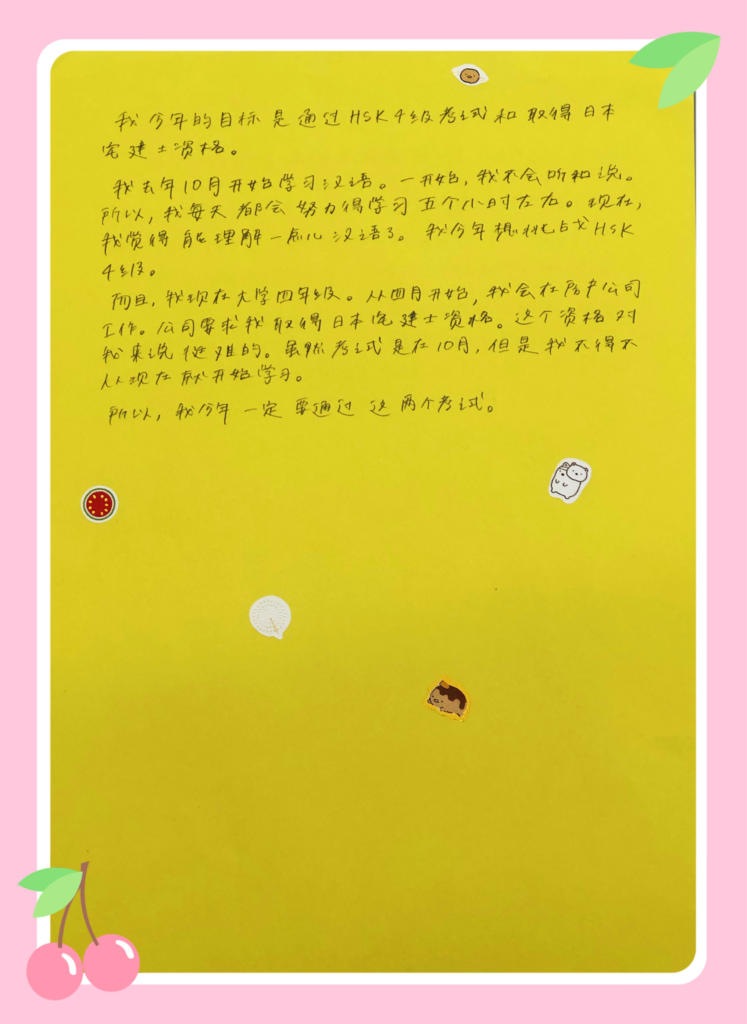 我今年的目标是通过HSK4级考试和取得日本
宅建士资格。
我去年10月开始学习汉语。一开始,我不会听和说。
所以,我每天都会努力得学习五个小时左右。现在,
我觉得能理解一点儿汉语了。我今年想挑战HSK
4级。
而且,我现在大学四年级。从四月开始,我会在房产公司
工作。公司要求我取得日本宅建士资格。这个资格对
我来说挺难的。虽然考试是在10月,但是我不得不
从现在就开始学习。
所以,我今年一定要通过这两个考试。